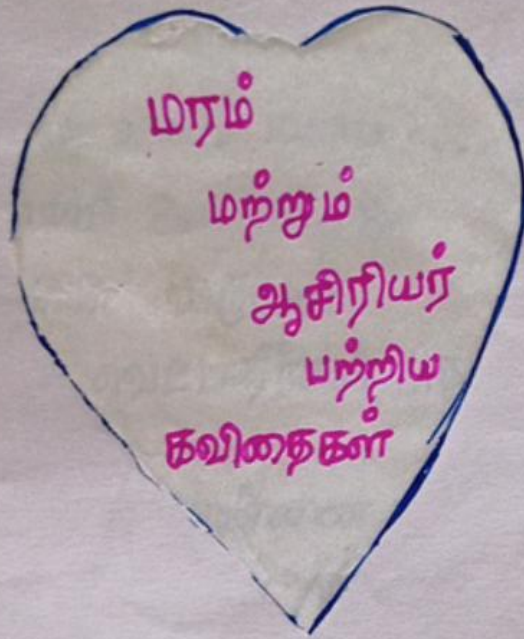 மரம்
மற்றும்
ஆசிரியர்
பற்றிய
கவிதைகள்